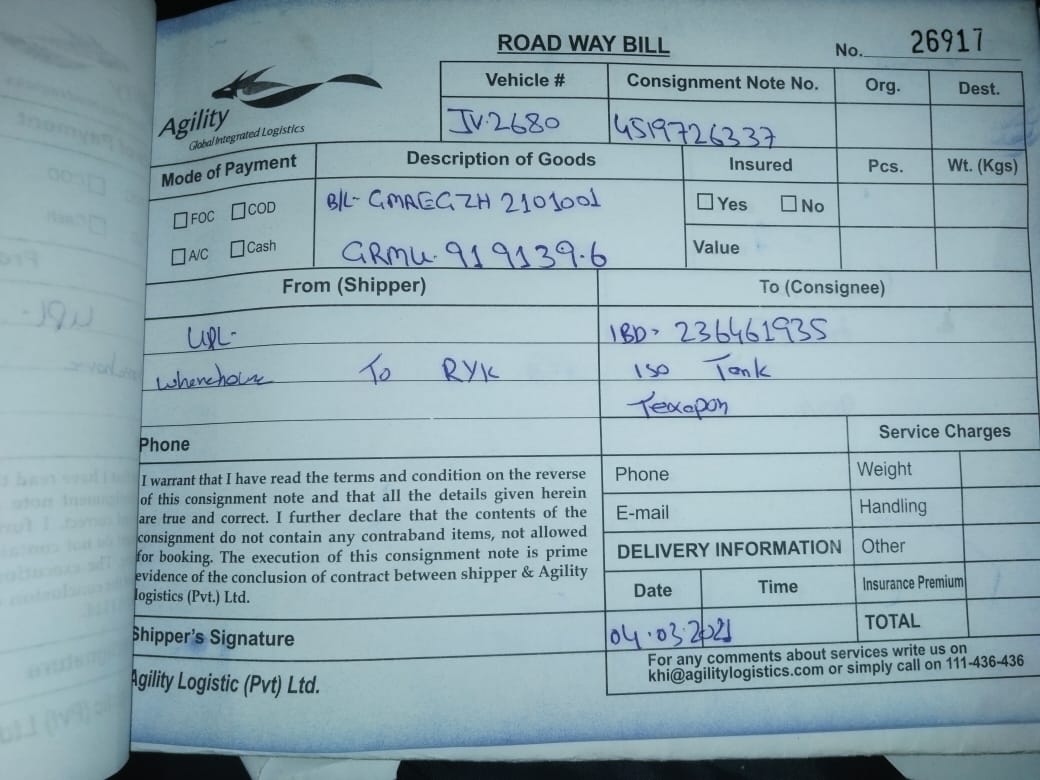 ROAD WAY BILL
No. 26917
Agility
Global Integrated Logistics
Vehicle # Consignment Note No. Org. Dest.
JV.2680 4519726337
Mode of Payment Description of Goods Insured Pcs. Wt. (Kgs)
FOC COD B/L- GMAEGZH 2101001 Yes No
A/C Cash GRMU. 919139.6 Value
From (Shipper) To (Consignee)
UPL- IBD- 236461935
Wherehouse To RYK ISO Tank
Texapon
Phone
Service Charges
I warrant that I have read the terms and condition on the reverse
of this consignment note and that all the details given herein
are true and correct. I further declare that the contents of the
consignment do not contain any contraband items, not allowed
for booking. The execution of this consignment note is prime
evidence of the conclusion of contract between shipper & Agility
logistics (Pvt.) Ltd.
Phone Weight
E-mail Handling
DELIVERY INFORMATION Other
Date Time Insurance Premium
04.03.2021 TOTAL
Shipper's Signature
Agility Logistic (Pvt) Ltd.
For any comments about services write us on
khi@agilitylogistics.com or simply call on 111-436-436